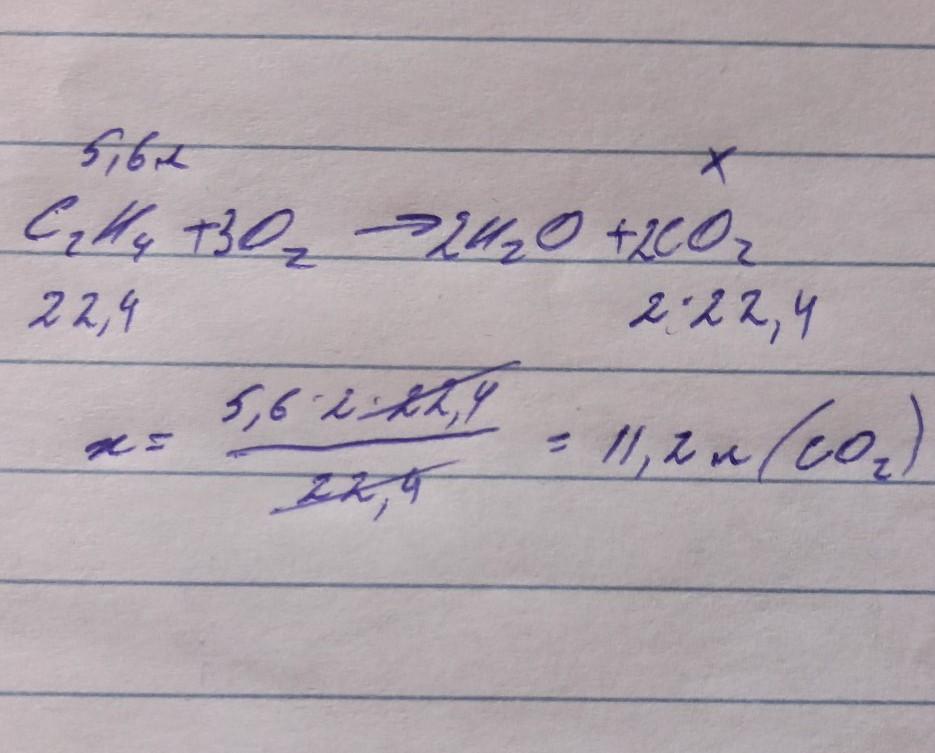 5,6л x
C₂H₄ + 3O₂ → 2H₂O + 2CO₂
22,4 2·22,4
x = 5,6·2·22,4 / 22,4 = 11,2 л (CO₂)